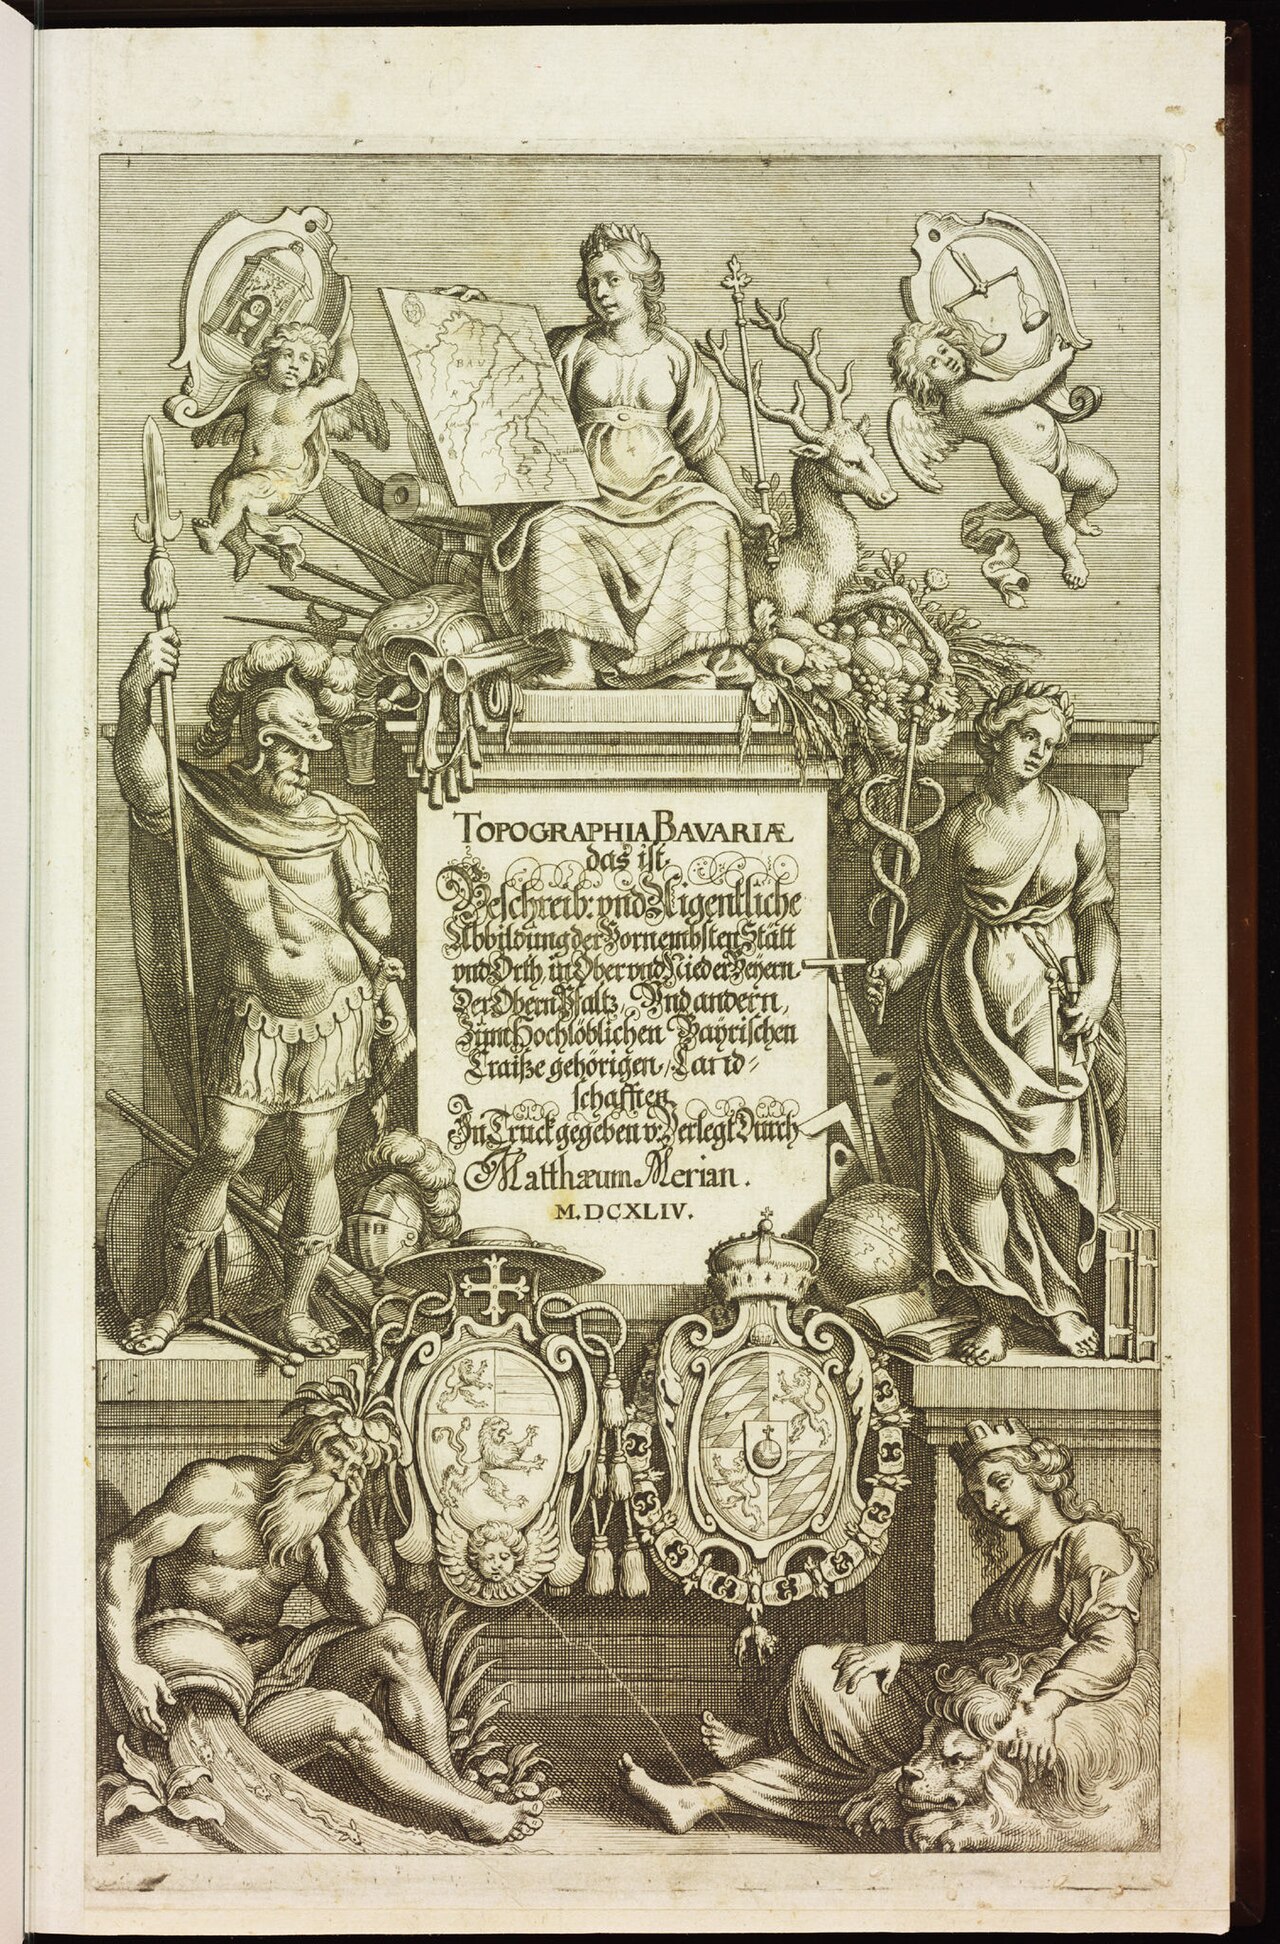 BAV
TOPOGRAPHIA BAVARIÆ
das ist,
Beschreib: vnd Aigentliche
Abbildung der Vornembsten Stätt
vnd Orth, in Ober vnd Nieder Beyern,
Der Obern Pfaltz, Vnd andern,
Zum Hochlöblichen Bayrischen
Craiße gehörigen, Land-
schafften.
In Truck gegeben v: Verlegt Durch
Matthæum Merian.
M.DCXLIV.